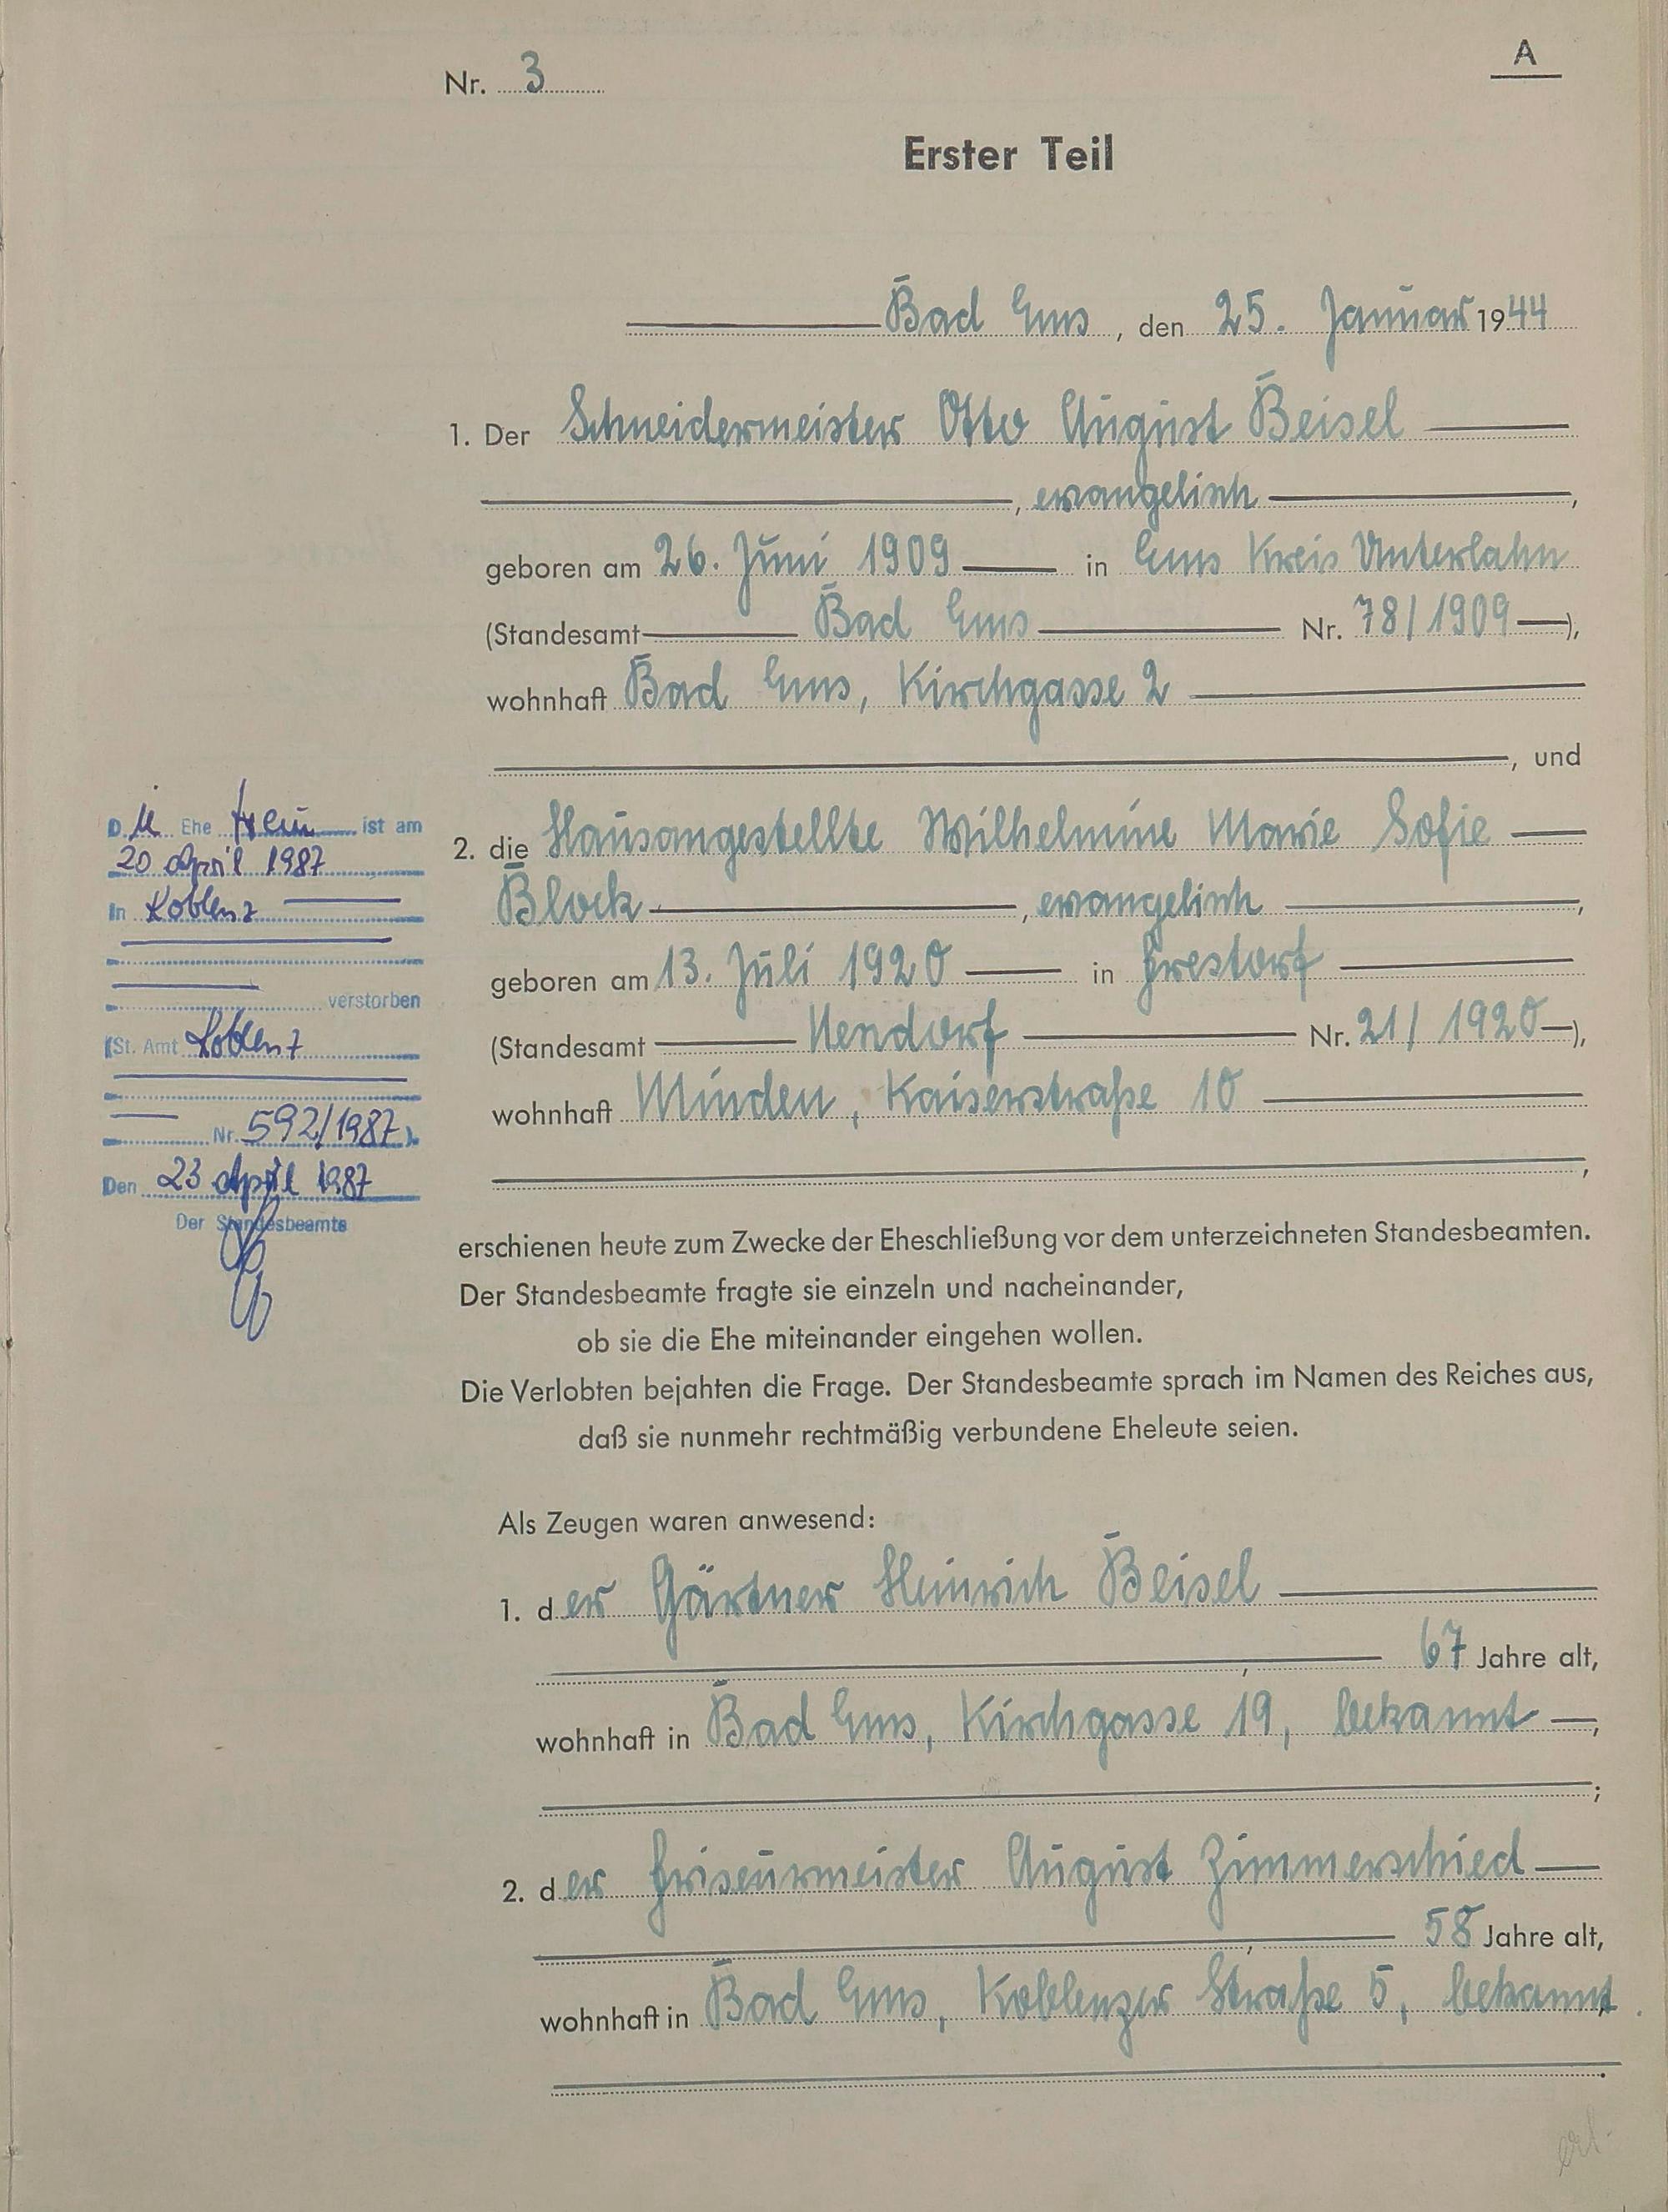 A
Nr. 3
Erster Teil
Bad Ems, den 25. Januar 1944
1. Der Schneidermeister Otto August Beisel
, evangelisch ,
geboren am 26. Juni 1909 in Ems Kreis Unterlahn
(Standesamt Bad Ems Nr. 78/1909 ),
wohnhaft Bad Ems, Kirchgasse 2
, und
2. die Hausangestellte Wilhelmine Marie Sofie
Block , evangelisch ,
geboren am 13. Juli 1920 in Frestorf
(Standesamt Nendorf Nr. 21/1920 ),
wohnhaft Minden, Kaiserstraße 10
,
erschienen heute zum Zwecke der Eheschließung vor dem unterzeichneten Standesbeamten.
Der Standesbeamte fragte sie einzeln und nacheinander,
ob sie die Ehe miteinander eingehen wollen.
Die Verlobten bejahten die Frage. Der Standesbeamte sprach im Namen des Reiches aus,
daß sie nunmehr rechtmäßig verbundene Eheleute seien.
Als Zeugen waren anwesend:
1. der Gärtner Heinrich Beisel
, 67 Jahre alt,
wohnhaft in Bad Ems, Kirchgasse 19, bekannt ,
;
2. der Friseurmeister August Zimmerschied
, 58 Jahre alt,
wohnhaft in Bad Ems, Koblenzer Straße 5, bekannt
.
Die Ehefrau ist am
20 April 1987
In Koblenz
verstorben
(St. Amt Koblenz
Nr. 592/1987 ).
Den 23 April 1987
Der Standesbeamte
erl.